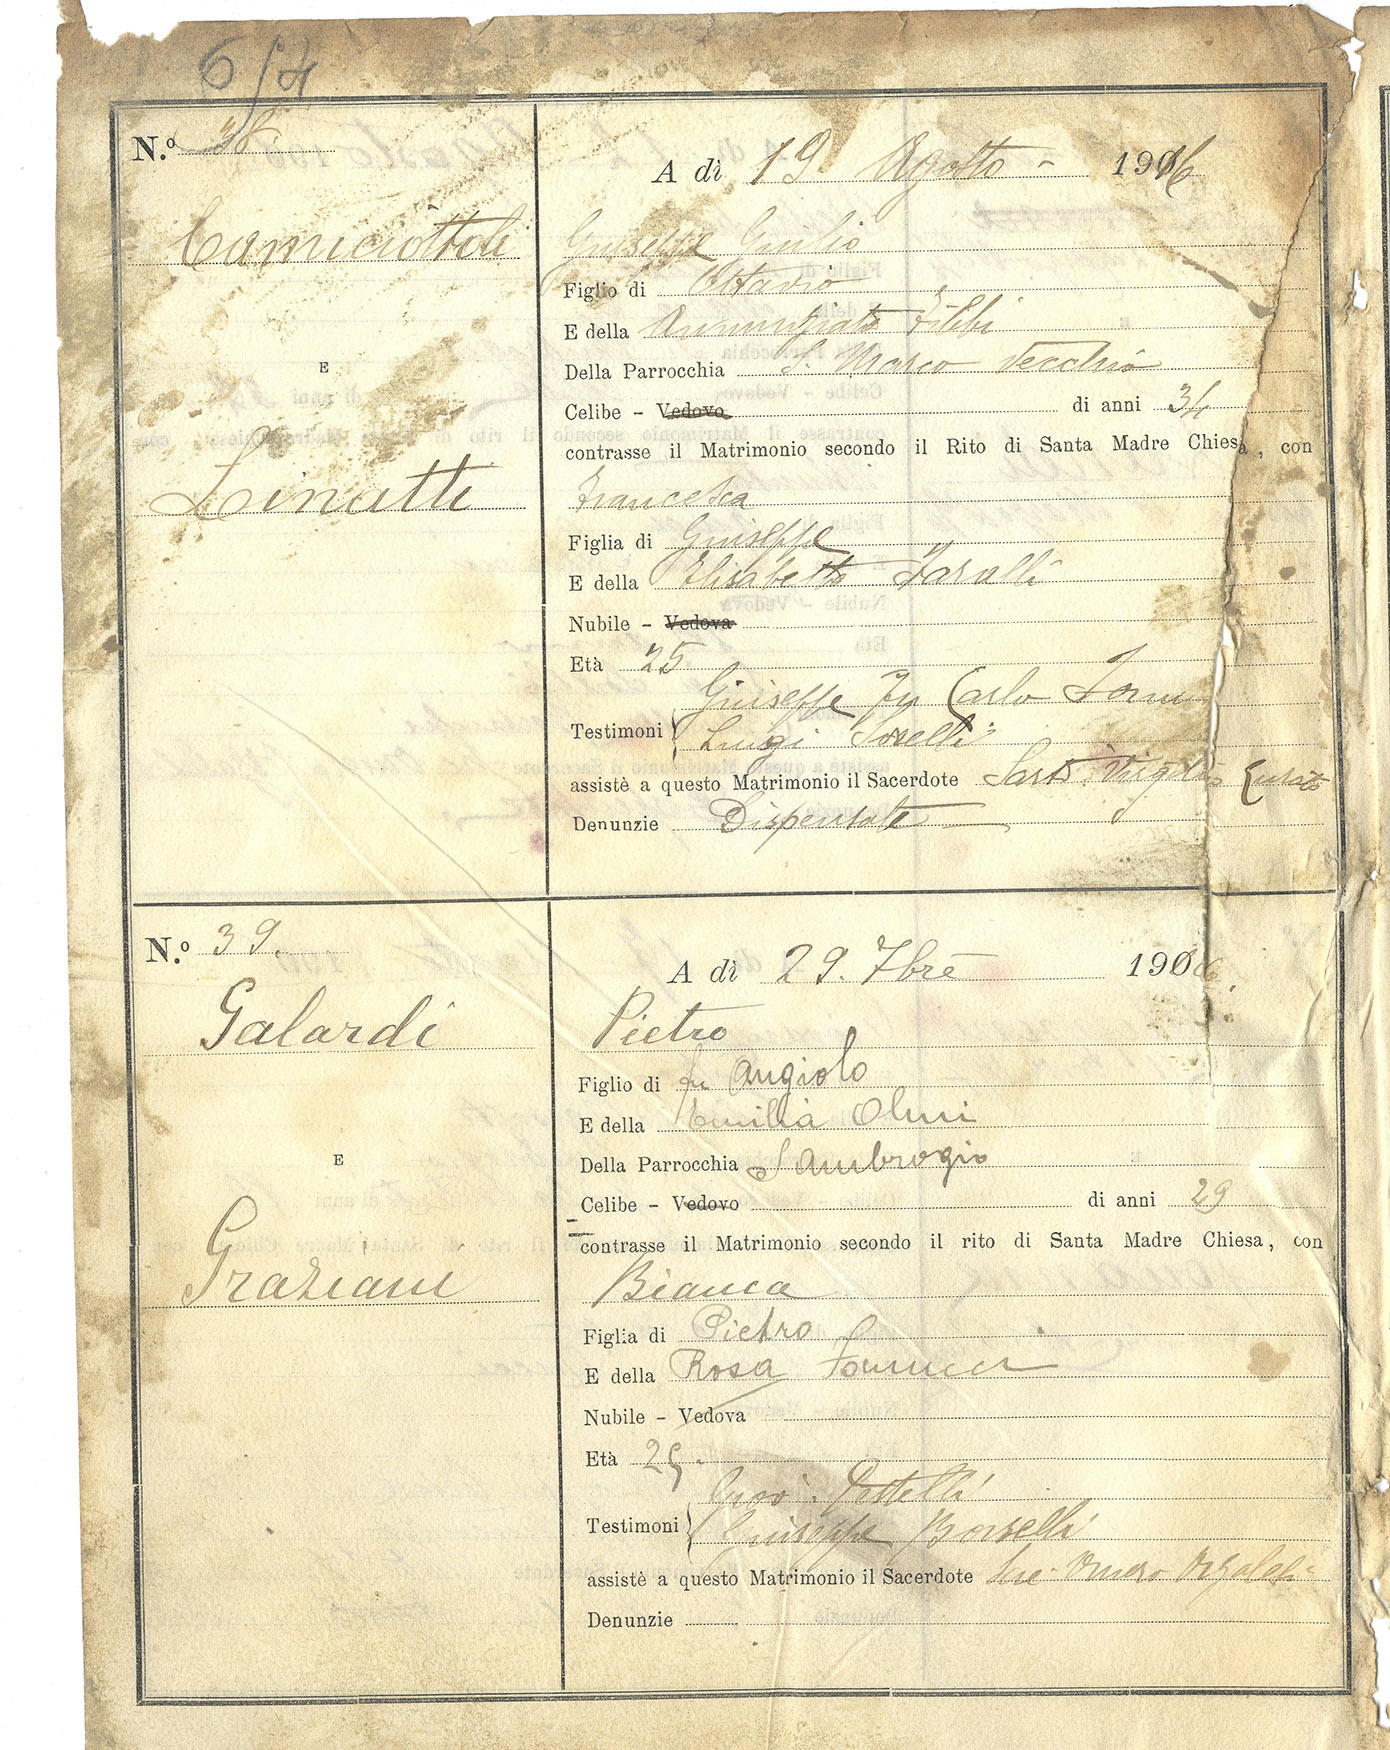 6/4
N.º 38
A dì 19 Agosto - 1916
Camiciottoli
Giuseppe Giulio
Figlio di Ottavio
E della Annunziata Filibi
E
Della Parrocchia S. Marco Vecchio
Celibe - Vedovo di anni 34
contrasse il Matrimonio secondo il Rito di Santa Madre Chiesa, con
Linutti
Francesca
Figlia di Giuseppe
E della Elisabetta Faralli
Nubile - Vedova
Età 25
Giuseppe Carlo
Testimoni Luigi Sorelli
assistè a questo Matrimonio il Sacerdote Virgilio Curato
Denunzie Dispensate
N.º 39.
A dì 29. 7bre 190
Galardi
Pietro
Figlio di fu Angiolo
E della Emilia Olmi
E
Della Parrocchia S Ambrogio
Celibe - Vedovo di anni 29
contrasse il Matrimonio secondo il rito di Santa Madre Chiesa, con
Graziani
Bianca
Figlia di Pietro
E della Rosa Fanucci
Nubile - Vedova
Età 25.
Testimoni Giuseppe Borselli
assistè a questo Matrimonio il Sacerdote
Denunzie